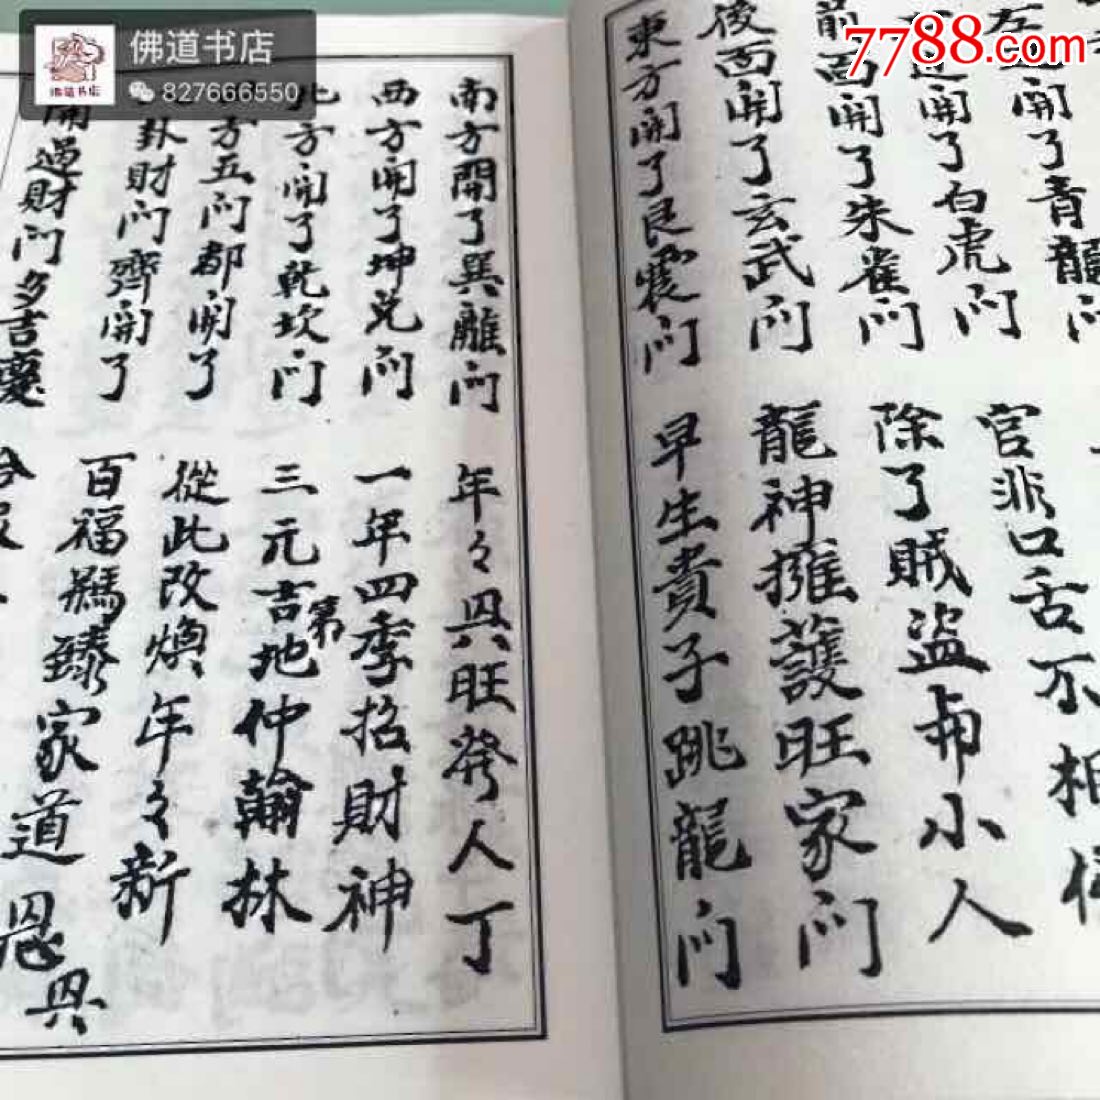 佛道书店
827666550
佛道书店
7788.com
開了青龍门
官非口舌不相
開了白虎门
除了賊盜却小人
前面開了朱雀门
龍神擁護旺家门
後面開了玄武门
早生貴子跳龍门
東方開了艮震门
南方開了巽離门
年々興旺發人丁
西方開了坤兌门
一年四季招財神
北方開了乾坎门
三元吉地仲翰林
第
方五门都開了
從此改煥年々新
卦財门齊開了
百福駢臻家道興
開過財门多吉慶
恩